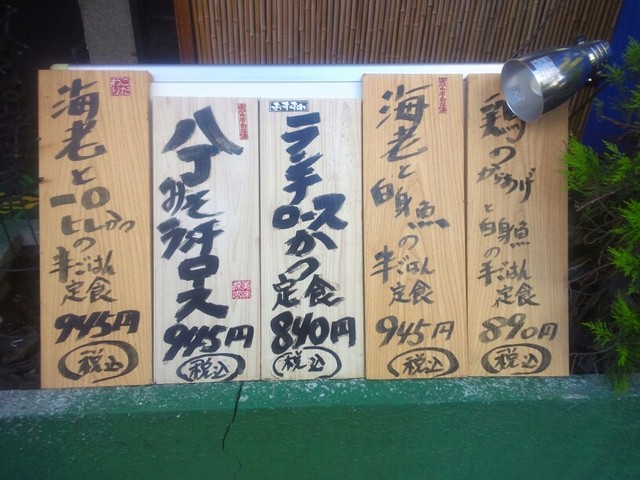 こだわり
海老と
一口
ヒレかつ
の
半ごはん
定食
945円
税込
八丁
みそ
ランチ
ロース
945円
税込
おすすめ
ランチ
ロース
かつ
定食
840円
税込
海老と
白身魚
の
半ごはん
定食
945円
税込
鶏の
から揚げ
と
白身魚
の
半ごはん
定食
890円
税込